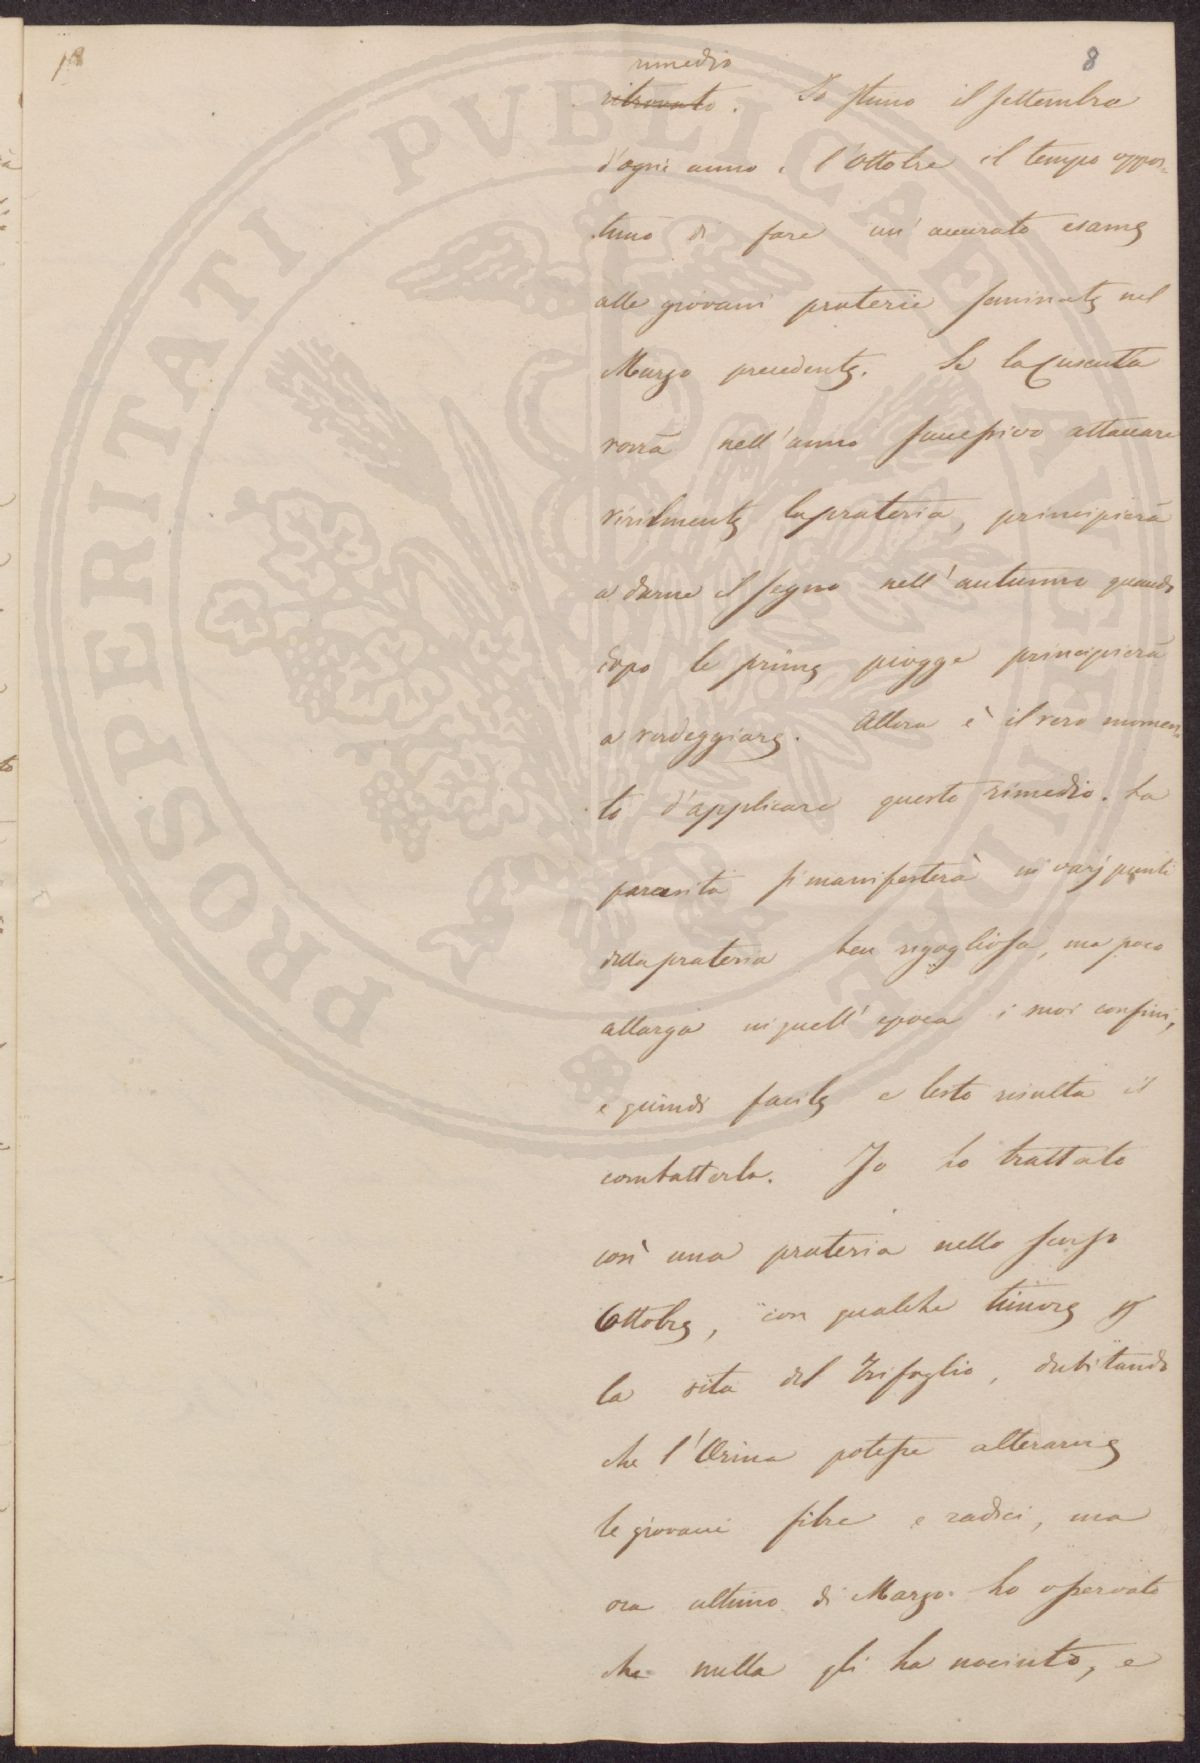 8
rimedio
ritrovato. Io stimo il settembre
d'ogni anno e l'ottobre il tempo oppor=
tuno di fare un' accurato esame
alle giovani praterie seminate nel
Marzo precedente. Se la Cuscuta
vorrà nell'anno successivo attaccare
virilmente la prateria, principierà
a darne il segno nell'autunno quando
dopo le prime piogge principierà
a verdeggiare. Allora è il vero momen=
to d'applicare questo rimedio. La
parasita si manifesterà in varj punti
della prateria ben rigogliosa, ma poco
allarga in quell'epoca i suoi confini,
e quindi facile e lesto risulta il
combatterla. Io ho trattato
così una prateria nello scorso
Ottobre, con qualche timore p
la vita del Trifoglio, dubitando
che l'Orina potesse alterarne
le giovani fibre e radici, ma
ora ultimo di Marzo ho osservato
che nulla gli ha nociuto, e
PROSPERITATI PVBLICAE AVGENDAE